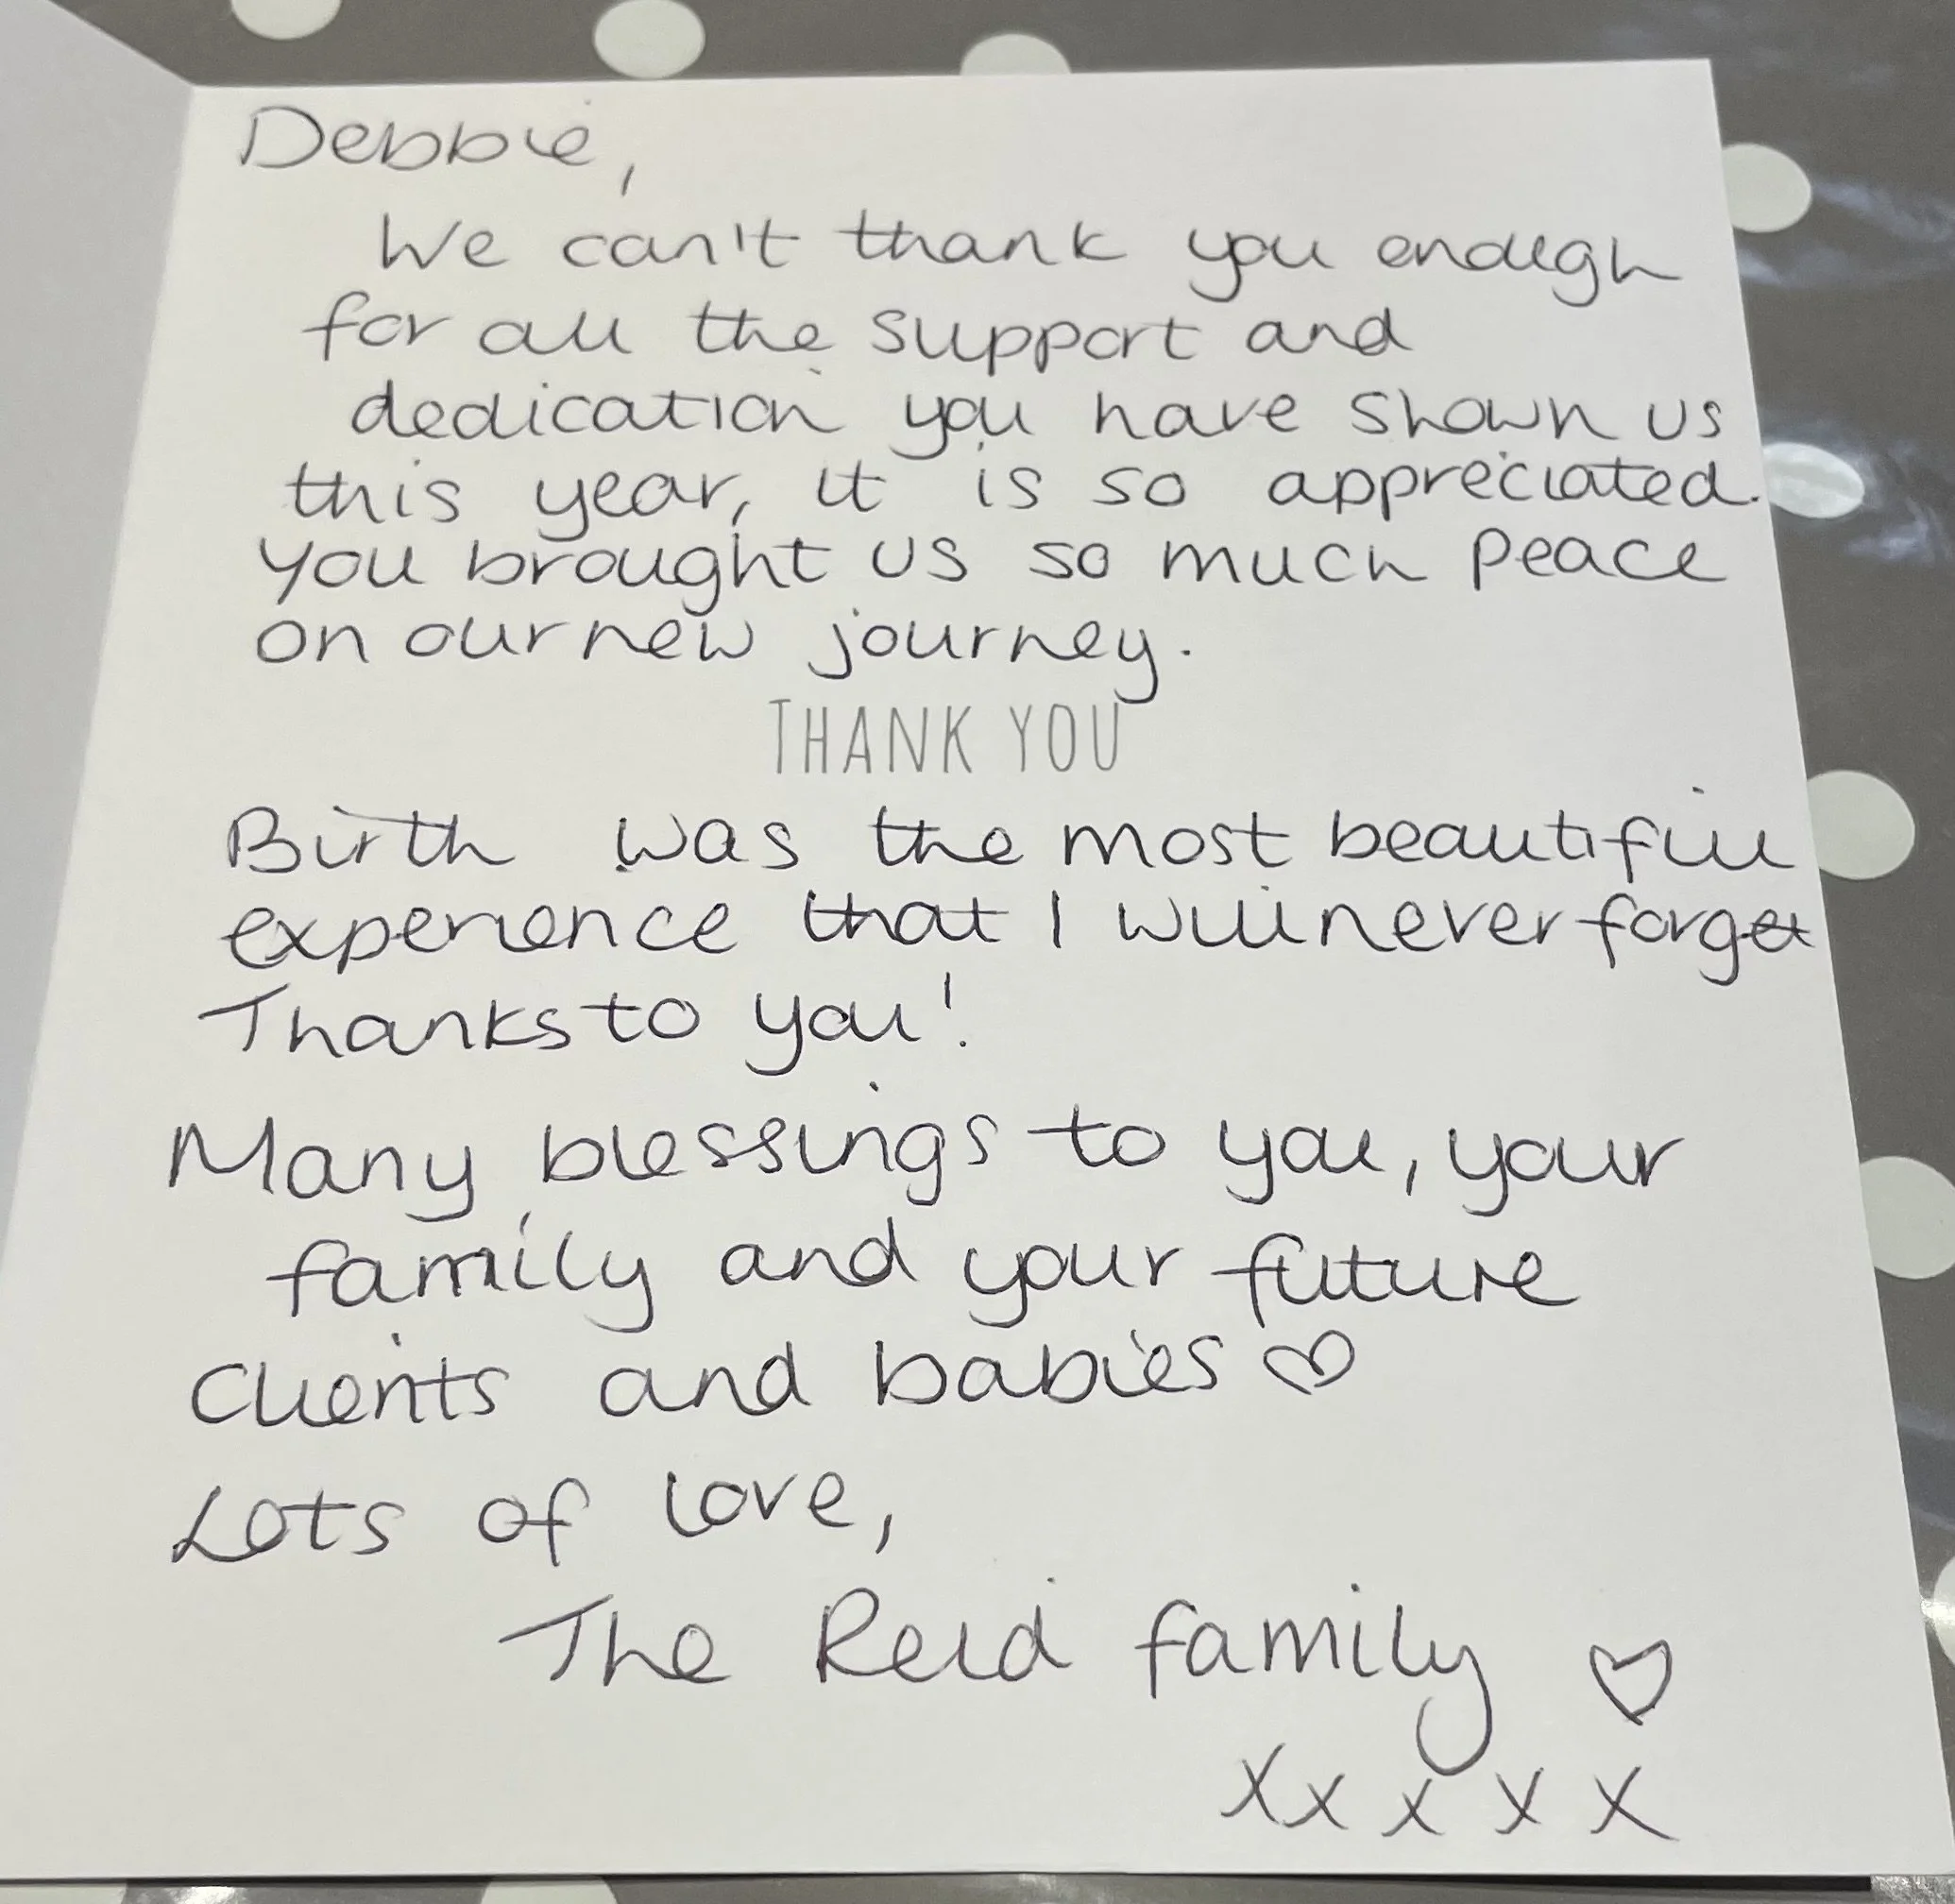 Debbie,
We can't thank you enough
for all the support and
dedication you have shown us
this year, it is so appreciated.
You brought us so much peace
on our new journey.
THANK YOU
Birth was the most beautiful
experience that I will never forget
Thanks to you!
Many blessings to you, your
family and your future
clients and babies ♡
Lots of love,
The Reid family ♡
x x x x x